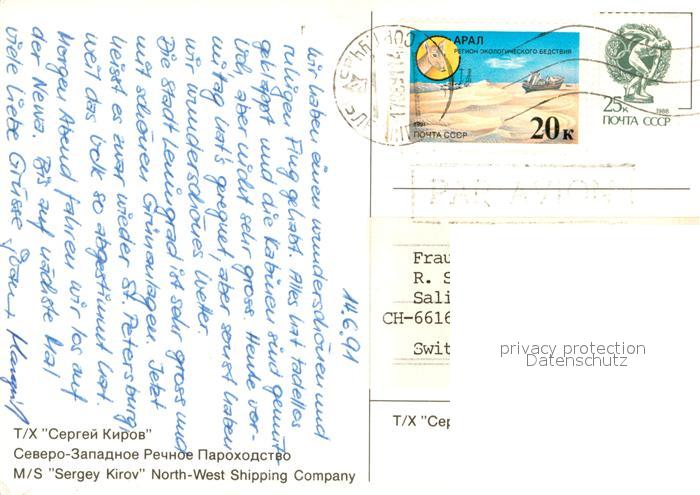 14.6.91
Wir haben einen wunderschönen und
ruhigen Flug gehabt. Alles hat tadellos
geklappt und die Kabinen sind gemüt-
lich, aber nicht sehr gross. Heute vor-
mittag hat's geregnet, aber sonst haben
wir wunderschönes Wetter.
Die Stadt Leningrad ist sehr gross und
mit schönen Grünanlagen. Jetzt
heisst es zwar wieder St. Petersburg,
weil das Volk so abgestimmt hat.
Morgen Abend fahren wir los auf
der Newa. Bis auf nächste Mal
viele liebe Grüsse
Т/Х "Сергей Киров"
Северо-Западное Речное Пароходство
M/S "Sergey Kirov" North-West Shipping Company
АРАЛ
РЕГИОН ЭКОЛОГИЧЕСКОГО БЕДСТВИЯ
1991
ПОЧТА СССР
20 к
25к
1988
ПОЧТА СССР
PAR AVION
Frau
R. S
Sali
CH-6616
Swit
privacy protection
Datenschutz
Т/Х "Сер